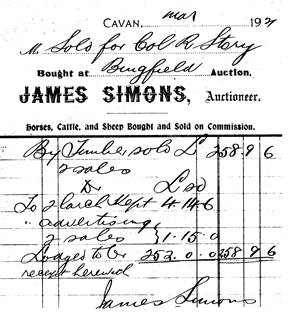 CAVAN, Mar 192
M. Sold for Col R. Story
Bought at Bingfield Auction.
JAMES SIMONS, Auctioneer.
Horses, Cattle, and Sheep Bought and Sold on Commission.
By Timber sold £ 258 9 6
2 sales
Dr £ s d
To 2 larch kept 4.14.6
" advertising
2 sales } 1.15.0
Lodged to Cr 252.0.0 258 9 6
receipt herewith
James Simons